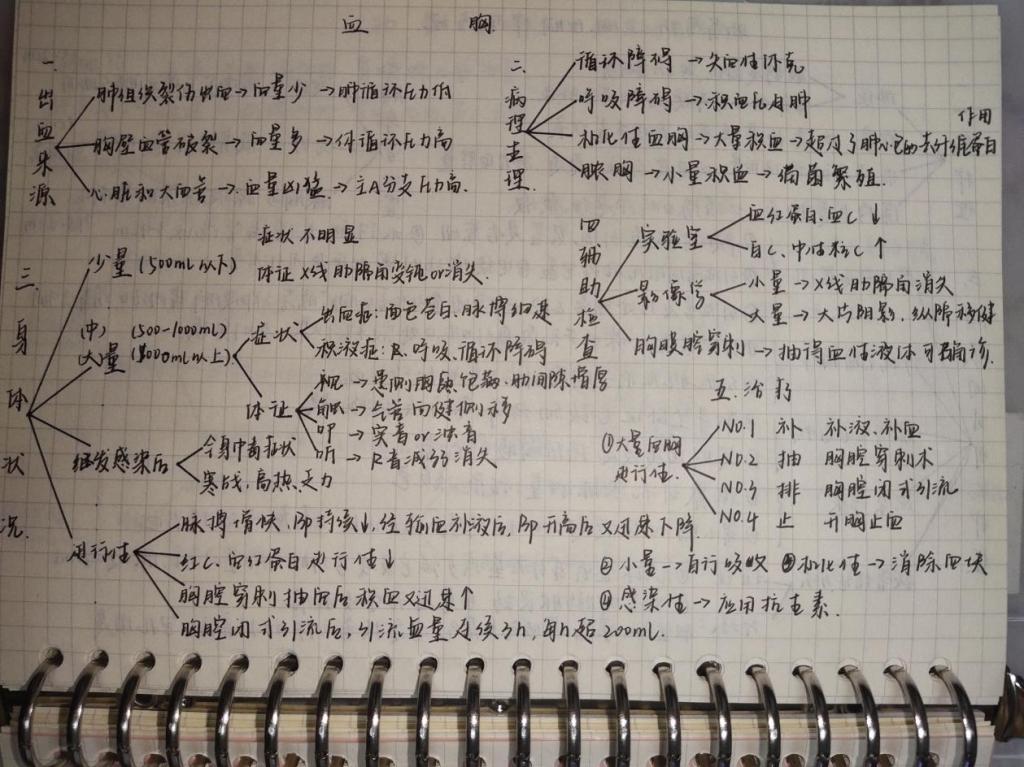 血 胸
一 出血来源
肺组织裂伤出血→血量少→肺循环压力低
胸壁血管破裂→血量多→体循环压力高
心脏和大血管→血量凶猛→主A分支压力高.
二 病理生理
循环障碍→失血性休克
呼吸障碍→积血压迫肺
机化性血胸→大量积血→超过了肺心包的去纤维蛋白作用
脓胸→小量积血→细菌繁殖.
三. 身体状况
少量(500mL以下)
症状不明显
体证 X线肋膈角变钝or消失.
(中) (500-1000mL)
大量(1000mL以上)
症状
出血症:面色苍白、脉搏细速
积液症:R.呼吸、循环障碍
体证
视→患侧胸廓饱满、肋间隙增厚
触→气管向健侧移
叩→实音or浊音
听→R音减弱消失
继发感染后
全身中毒症状
寒战、高热、乏力
进行性
脉搏增快,BP持续↓,经输血补液后,BP升高后又迅速下降.
红C、血红蛋白进行性↓
胸腔穿刺抽血后积血又迅速↑
胸腔闭式引流后,引流血量连续3h,每h超200mL.
四 辅助检查
实验室
血红蛋白、血C↓
白C、中性粒C↑
影像学
小量→X线肋膈角消失
大量→大片阴影,纵膈移健
胸膜腔穿刺→抽得血性液体可确诊.
五.治疗
①大量血胸 进行性.
NO.1 补 补液、补血
NO.2 抽 胸腔穿刺术
NO.3 排 胸腔闭式引流
NO.4 止 开胸止血
②小量→自行吸收 ③机化性→消除血块
④感染性→应用抗生素.